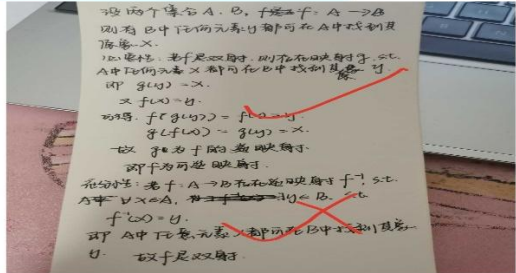 设两个集合A、B, f是f: A→B
则有B中任何元素y都可在A中找到其
原象x.
必要性: 若f是双射, 则存在映射g, s.t.
A中任何元素x都可在B中找到其象y.
即 g(y) = x.
又 f(x) = y.
可得: f(g(y)) = f(x) = y.
g(f(x)) = g(y) = x.
故 g为f的逆映射.
即f为可逆映射.
充分性: 若f: A→B存在逆映射f⁻¹, s.t.
A中 ∀x∈A, ∃y∈B, s.t.
f⁻¹(x) = y.
即 A中任意元素x都可在B中找到其象
y. 故f是双射.